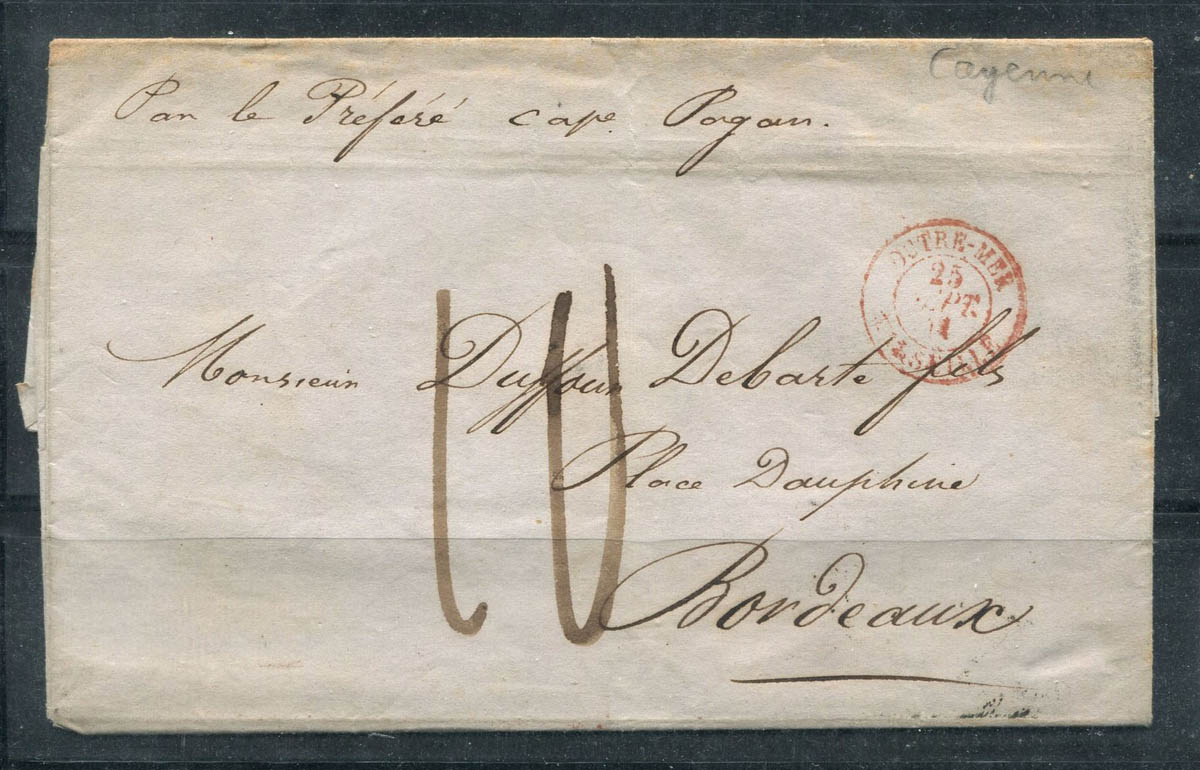 Cayenne
Par le Préféré cape Pagan.
OUTRE-MER
25
SEPT.
MARSEILLE
Monsieur Duffour Debarte fils
Place Dauphine
Bordeaux
10